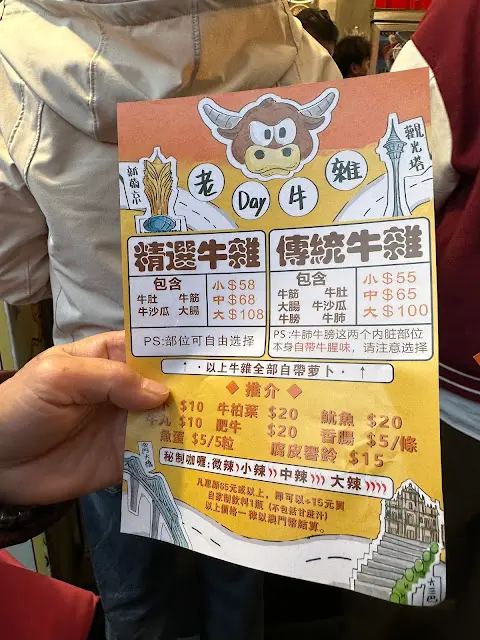 新葡京
觀光塔
老Day牛雜
精選牛雜
包含
牛肚 牛筋
牛沙瓜 大腸
小$58
中$68
大$108
PS:部位可自由选择
傳統牛雜
包含
牛筋 牛肚
大腸 牛沙瓜
牛膀 牛肺
小$55
中$65
大$100
PS:牛肺牛膀这两个内脏部位
本身自带牛腥味,请注意选择
↑·以上牛雜全部自带萝卜·↑
推介
$10 牛柏葉 $20 魷魚 $20
牛丸 $10 肥牛 $20 香腸 $5/條
魚蛋 $5/5粒 腐皮響鈴 $15
秘制咖喱:微辣》小辣》》中辣》》》大辣》》》》
凡惠顧65元或以上,即可以+15元買
自家制飲料1瓶(不包括甘蔗汁)
以上價格一律以澳門幣結算。
大三巴